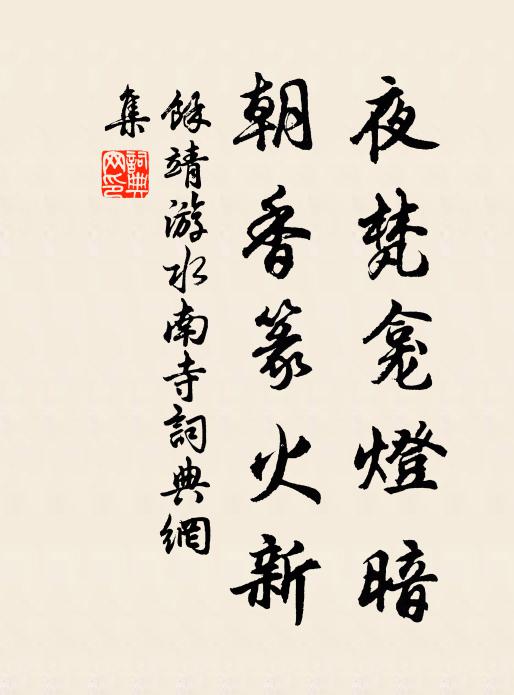 夜梵龛燈暗
朝香篆火新
餘靖游水南寺詞典網
集
詞典网印